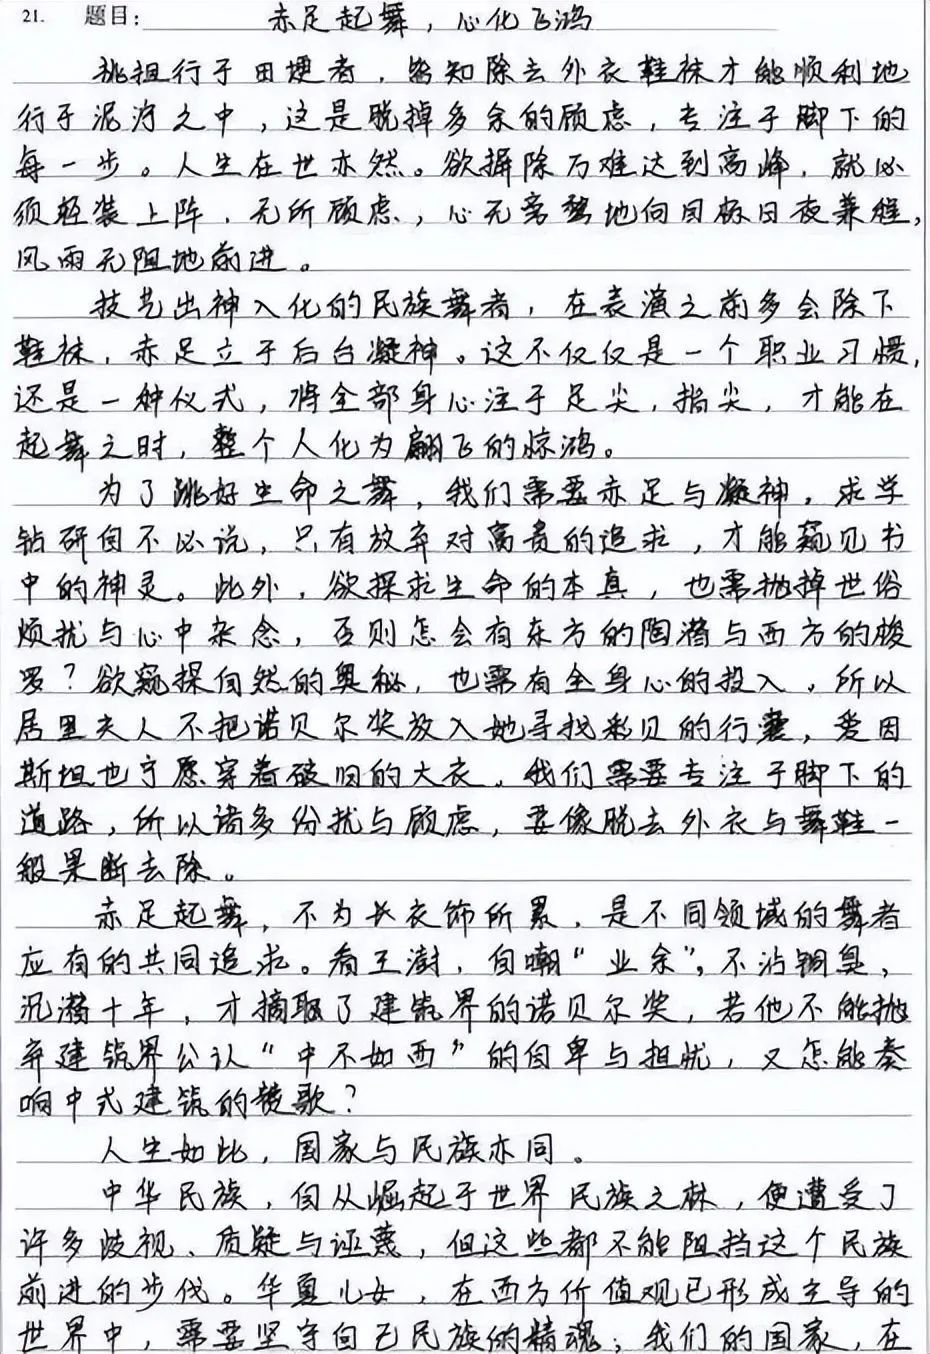 21. 题目: 赤足起舞，心化飞鸿
挑担行于田埂者，皆知除去外衣鞋袜才能顺利地
行于泥泞之中，这是脱掉多余的顾虑，专注于脚下的
每一步。人生在世亦然。欲摒除万难达到高峰，就必
须轻装上阵，无所顾虑，心无旁骛地向目标日夜兼程，
风雨无阻地前进。
技艺出神入化的民族舞者，在表演之前多会除下
鞋袜，赤足立于后台凝神。这不仅仅是一个职业习惯，
还是一种仪式，将全部身心注于足尖，指尖，才能在
起舞之时，整个人化为翩飞的惊鸿。
为了跳好生命之舞，我们需要赤足与凝神。求学
钻研自不必说，只有放弃对富贵的追求，才能窥见书
中的神灵。此外，欲探求生命的本真，也需抛掉世俗
烦扰与心中杂念，否则怎会有东方的陶潜与西方的梭
罗？欲窥探自然的奥秘，也需有全身心的投入。所以
居里夫人不把诺贝尔奖放入她寻找彩贝的行囊，爱因
斯坦也宁愿穿着破旧的大衣。我们需要专注于脚下的
道路，所以诸多纷扰与顾虑，要像脱去外衣与舞鞋一
般果断去除。
赤足起舞，不为长衣饰所累，是不同领域的舞者
应有的共同追求。看王澍，自嘲“业余”，不沾铜臭，
沉潜十年，才摘取了建筑界的诺贝尔奖，若他不能抛
弃建筑界公认“中不如西”的自卑与担忧，又怎能奏
响中式建筑的赞歌？
人生如此，国家与民族亦同。
中华民族，自从崛起于世界民族之林，便遭受了
许多歧视、质疑与诬蔑，但这些都不能阻挡这个民族
前进的步伐。华夏儿女，在西方价值观已形成主导的
世界中，需要坚守自己民族的精魂；我们的国家，在